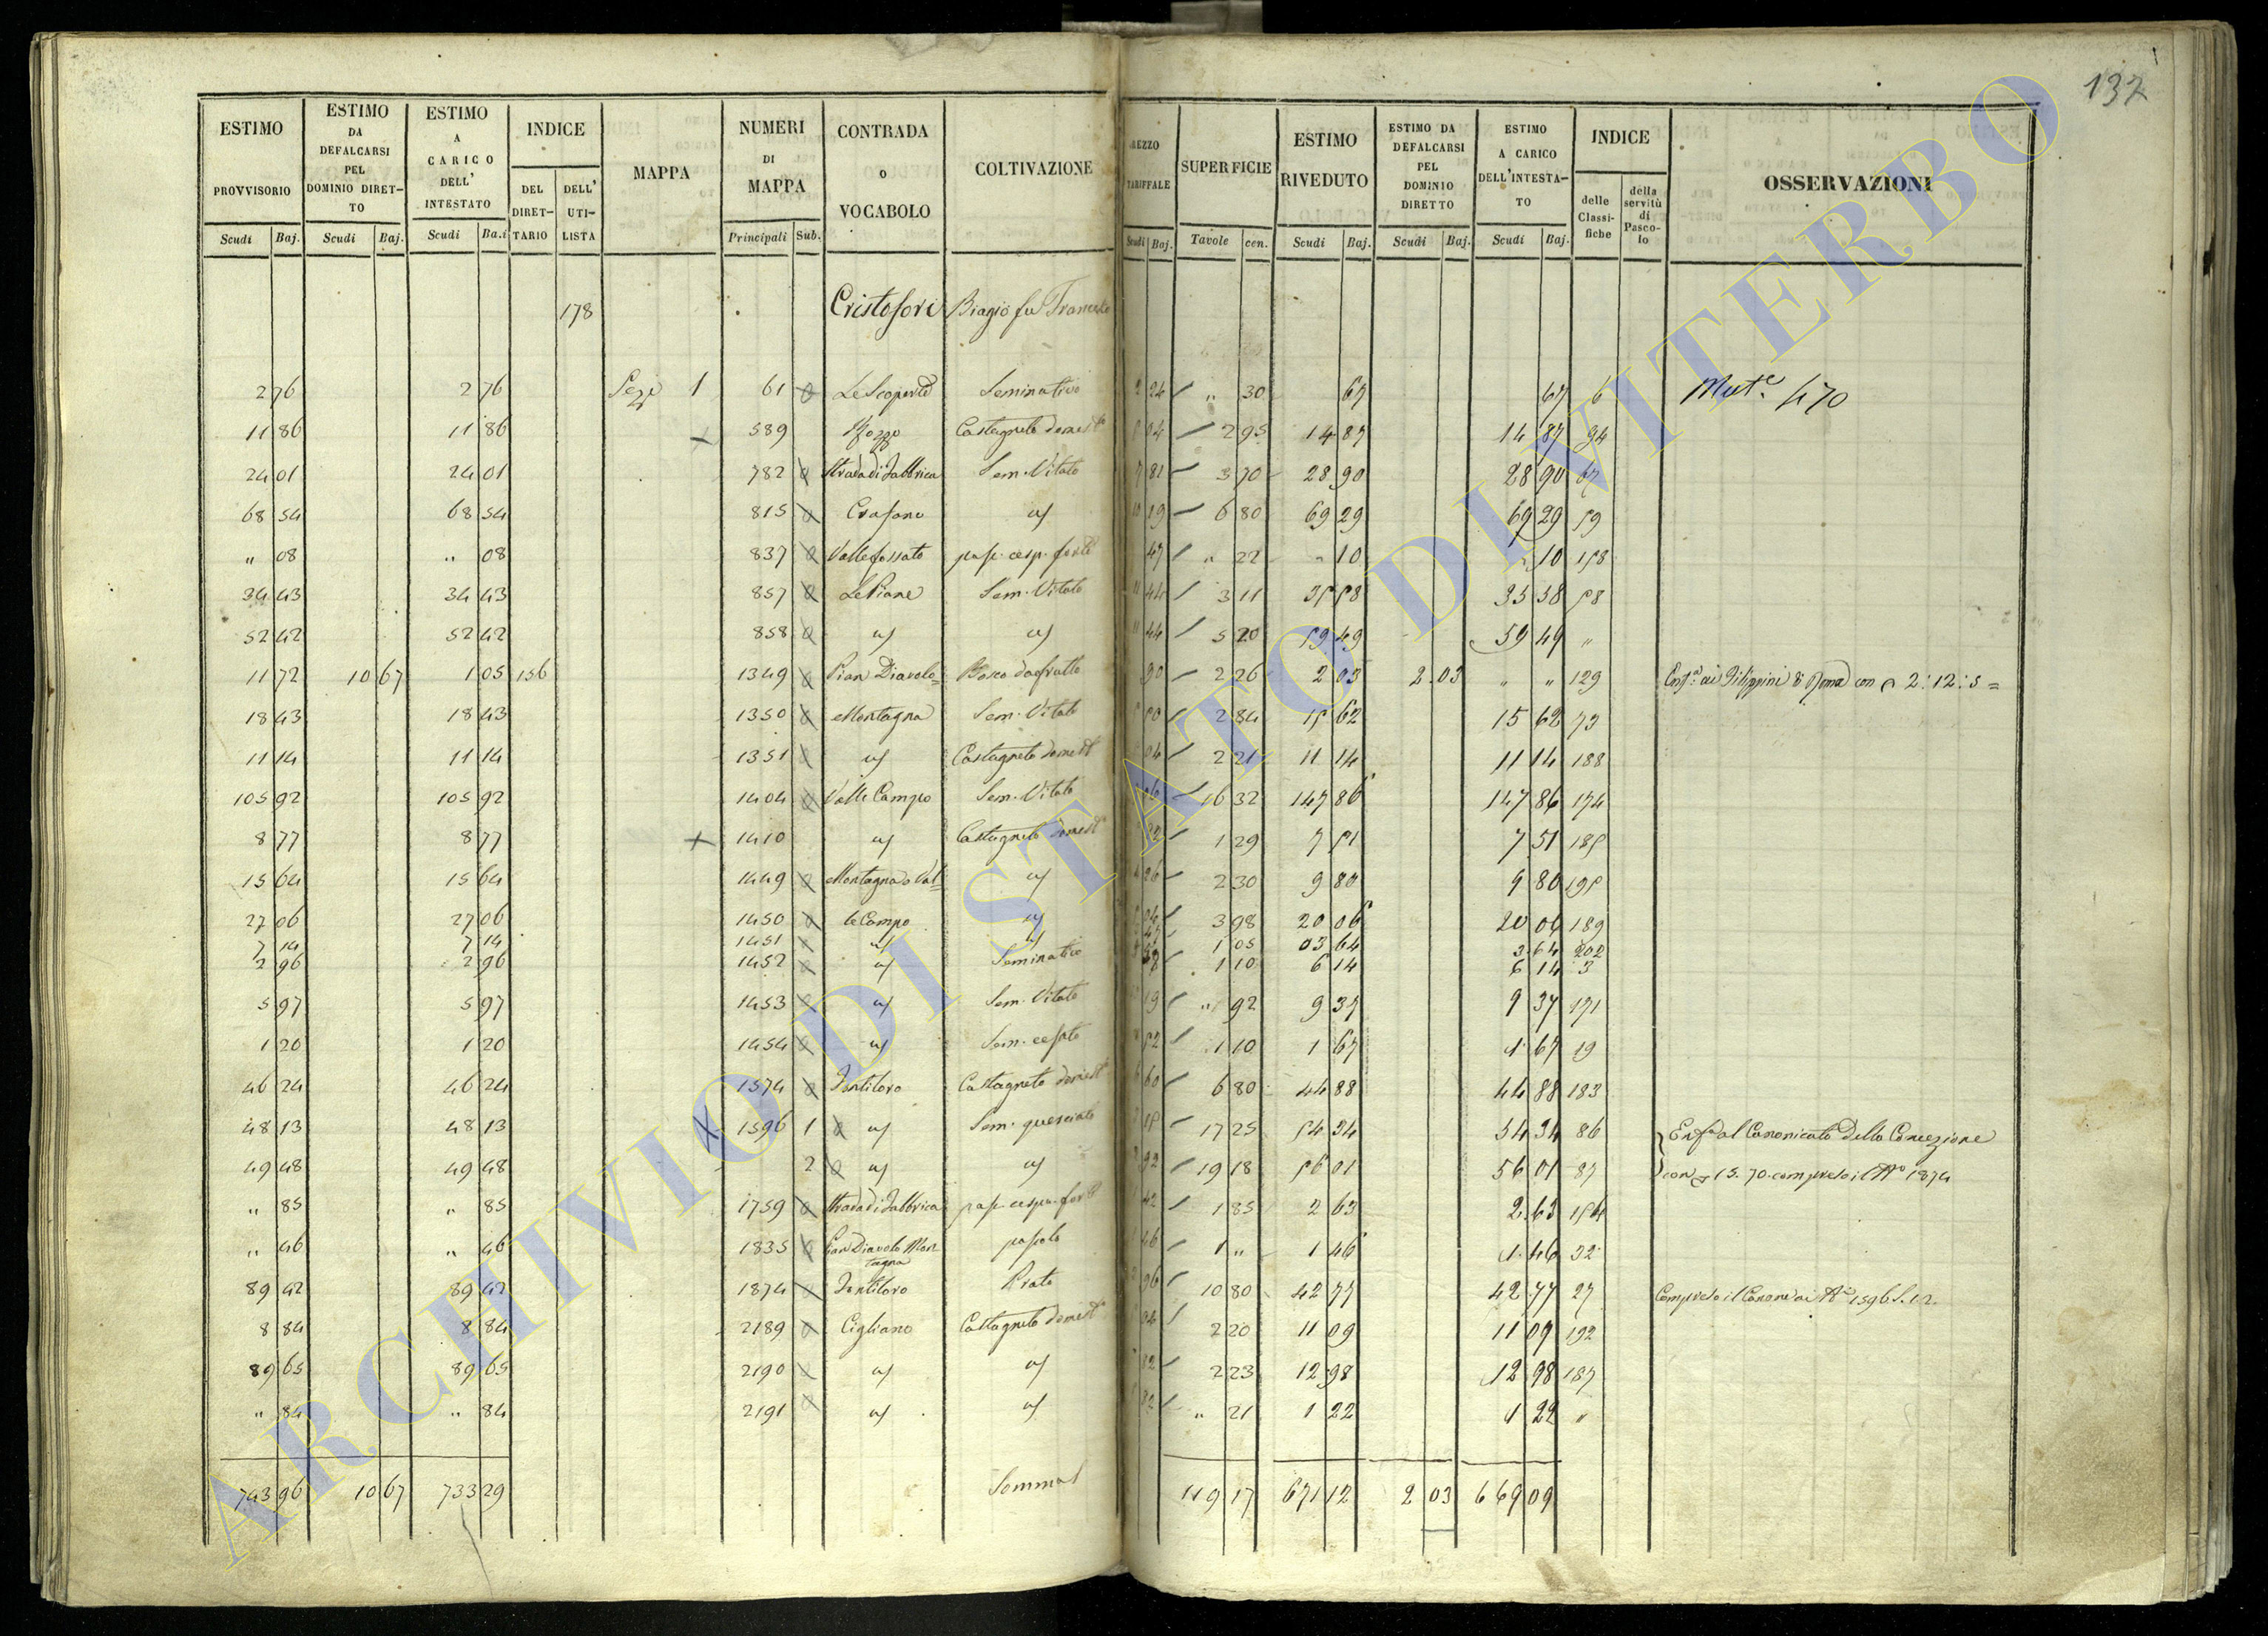 137
ESTIMO PROVVISORIO Scudi Baj. | ESTIMO DA DEFALCARSI PEL DOMINIO DIRETTO Scudi Baj. | ESTIMO A CARICO DELL' INTESTATO Scudi Ba.i | INDICE DEL DIRETTARIO | DELL' UTILISTA | MAPPA | NUMERI DI MAPPA Principali Sub. | CONTRADA O VOCABOLO | COLTIVAZIONE | REZZO TARIFFALE Scudi Baj. | SUPERFICIE Tavole cen. | ESTIMO RIVEDUTO Scudi Baj. | ESTIMO DA DEFALCARSI PEL DOMINIO DIRETTO Scudi Baj. | ESTIMO A CARICO DELL'INTESTATO Scudi Baj. | INDICE delle Classifiche | della servitù di Pascolo | OSSERVAZIONI
178 Cristofori Biagio fu Francesco
2 76 | 2 76 | 1 | 61 | Le Scoperte | Seminativo | 2 24 | " 30 | 67 | 67 | 6 | Mut.e 470
11 86 | 11 86 | 589 | Pozzo | Castagneto domest | 5 04 | 2 95 | 14 87 | 14 87 | 94
24 01 | 24 01 | 782 | Strada di Fabbrica | Sem. Vitato | 7 81 | 3 70 | 28 90 | 28 90 | 67
68 54 | 68 54 | 815 | Crafano | 10 19 | 6 80 | 69 29 | 69 29 | 59
" 08 | " 08 | 837 | Valle fossato | pas. cesp. forte | 47 | " 22 | " 10 | " 10 | 158
34 43 | 34 43 | 857 | Le Piane | Sem. Vitato | 11 44 | 3 11 | 35 58 | 35 58 | 58
52 42 | 52 42 | 858 | 11 44 | 5 20 | 59 49 | 59 49 | "
11 72 | 10 67 | 1 05 | 156 | 1349 | Pian Diavolo | Bosco da frutto | 90 | 2 26 | 2 03 | 2 03 | " " | 129 | ai Filippini di Roma con 2:12:5=
18 43 | 18 43 | 1350 | Montagna | Sem. Vitato | 5 50 | 2 84 | 15 62 | 15 62 | 73
11 14 | 11 14 | 1351 | Castagneto domest | 04 | 2 21 | 11 14 | 11 14 | 188
105 92 | 105 92 | 1404 | Valle Campo | Sem. Vitato | 06 | 16 32 | 147 86 | 147 86 | 174
8 77 | 8 77 | 1410 | Castagneto domest | 82 | 1 29 | 7 51 | 7 51 | 185
15 64 | 15 64 | 1449 | Montagna o Val= | 4 26 | 2 30 | 9 80 | 9 80 | 195
27 06 | 27 06 | 1450 | le Campo | 5 04 | 3 98 | 20 06 | 20 06 | 189
7 14 | 7 14 | 1451 | 1 05 | 03 64 | 3 64 | 202
2 96 | 2 96 | 1452 | Seminativo | 1 10 | 6 14 | 6 14 | 3
5 97 | 5 97 | 1453 | Sem. Vitato | 19 | " 92 | 9 37 | 9 37 | 171
1 20 | 1 20 | 1454 | Sem. cesato | 52 | 1 10 | 1 67 | 1 67 | 19
46 24 | 46 24 | 1574 | Fontiloro | Castagneto domest | 6 60 | 6 80 | 44 88 | 44 88 | 183
48 13 | 48 13 | 1596 | 1 | Sem. querciato | 3 15 | 17 25 | 54 34 | 54 34 | 86 | al Canonicato della Concezione
49 48 | 49 48 | 2 | 2 92 | 19 18 | 56 01 | 56 01 | 87 | con 15.70 compreso il N° 1874
" 85 | " 85 | 1759 | Strada di Fabbrica | pas. cespu. forte | 1 42 | 1 85 | 2 63 | 2 63 | 154
" 46 | " 46 | 1835 | Pian Diavolo Montagna | pascolo | 1 46 | 1 " | 1 46 | 1 46 | 32
89 42 | 89 42 | 1874 | Fontiloro | Prato | 3 96 | 10 80 | 42 77 | 42 77 | 27 | Compreso il Canone al N° 1596 S. 1.2.
8 84 | 8 84 | 2189 | Cigliano | Castagneto domest | 04 | 2 20 | 11 09 | 11 09 | 192
89 65 | 89 65 | 2190 | 5 82 | 2 23 | 12 98 | 12 98 | 187
" 84 | " 84 | 2191 | 5 82 | " 21 | 1 22 | 1 22 | "
743 96 | 10 67 | 733 29 | Somma | 119 17 | 671 12 | 2 03 | 669 09
ARCHIVIO DI STATO DI VITERBO